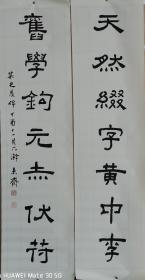 天然綴字黄中李
舊學鉤元赤伏符
HUAWEI Mate 30 5G